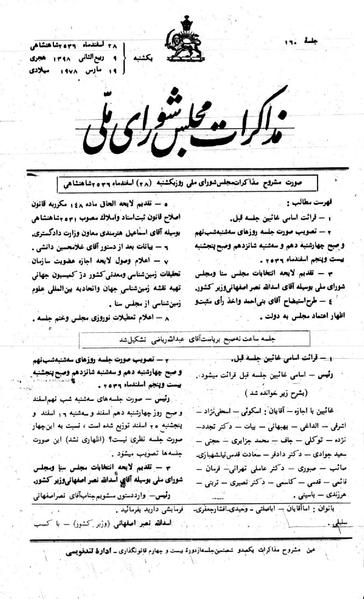 جلسهٔ ۱۶۰
یکشنبه
۲۸ اسفندماه ۲۵۳۶ شاهنشاهی
۹ ربیع‌الثانی ۱۳۹۸ هجری
۱۹ مارس ۱۹۷۸ میلادی
مذاکرات مجلس شورای ملی
صورت مشروح مذاکرات مجلس شورای ملی روز یکشنبه (۲۸) اسفندماه ۲۵۳۶ شاهنشاهی
فهرست مطالب :
۱ - قرائت اسامی غائبین جلسه قبل.
۲ - تصویب صورت جلسه روزهای سه‌شنبه شب نهم
و صبح چهارشنبه دهم و سه‌شنبه شانزدهم وصبح پنجشنبه
بیست وپنجم اسفندماه ۲۵۳۶.
۳ - تقدیم لایحه انتخابات مجلس سنا ومجلس
شورای ملی بوسیله آقای اسدالله نصر اصفهانی وزیر کشور.
۴ - طرح استیضاح آقای بنی‌احمد واخذ رأی مثبت و
اظهار اعتماد مجلس به دولت.
۵ - تقدیم لایحه الحاق ماده ۱۴۸ مکرر به قانون
اصلاح قانون ثبت اسناد واملاک مصوب ۲۵۳۱ شاهنشاهی
بوسیله آقای اسماعیل هنرمندی معاون وزارت دادگستری.
۶ - بیانات بعد از دستور آقای غلامحسین دانشی.
۷ - اعلام وصول لایحه اجازه عضویت سازمان
تحقیقات زمین‌شناسی ومعدنی کشور در کمیسیون جهانی
تهیه نقشه زمین‌شناسی جهان واتحادیه بین‌المللی علوم
زمین‌شناسی از مجلس سنا.
۸ - اعلام تعطیلات نوروزی مجلس وختم جلسه.
جلسه ساعت نه صبح بریاست آقای عبدالله ریاضی تشکیل شد
۱ - قرائت اسامی غائبین جلسه قبل.
رئیس - اسامی غائبین جلسه قبل قرائت میشود.
(بشرح زیر خوانده شد)
غائبین با اجازه - آقایان : اسکوئی - اسحق‌نژاد -
اشرفی - الداغی - بهبهانی - بیات - دکتر تجدد -
نژده - توکلی - جاف - محمد جزایری - حجتی -
سعید جوادی - دادفر - دکتر دادفر - سعادت قدس‌نیا
صائب - صبوری - دکتر عاملی تهرانی - فرمان -
قادر مرزی - قدسی - دکتر کاسمی - دکتر نصیری - ترندی
هرزندی - یاسینی.
بانوان : آقاایان - اباصلتی - وحیدی - افشارجعفری -
۲ - تصویب صورت جلسه روزهای سه‌شنبه شب نهم
و صبح چهارشنبه دهم و سه‌شنبه شانزدهم وصبح پنجشنبه
بیست وپنجم اسفندماه ۲۵۳۶.
رئیس - صورت جلسه‌های سه‌شنبه شب نهم اسفند
و صبح روز چهارشنبه دهم اسفند و سه‌شنبه ۱۶ اسفند و
پنجشنبه ۲۵ اسفند توزیع شده است ، نسبت به این چهار
صورت جلسه نظری نیست؟ (اظهاری نشد) این صورت
جلسه‌ها تصویب میشود.
۳ - تقدیم لایحه انتخابات مجلس سنا ومجلس
شورای ملی بوسیله آقای اسدالله نصر اصفهانی وزیر کشور.
رئیس - وارد دستور میشویم جناب آقای نصر اصفهانی
فرمایشی دارید بفرمائید.
اسدالله نصر اصفهانی (وزیر کشور) - با کسب
عین مشروح مذاکرات یکصدو شصتمین جلسه از دوره بیست و چهارم قانونگذاری - ادارهٔ تندنویسی